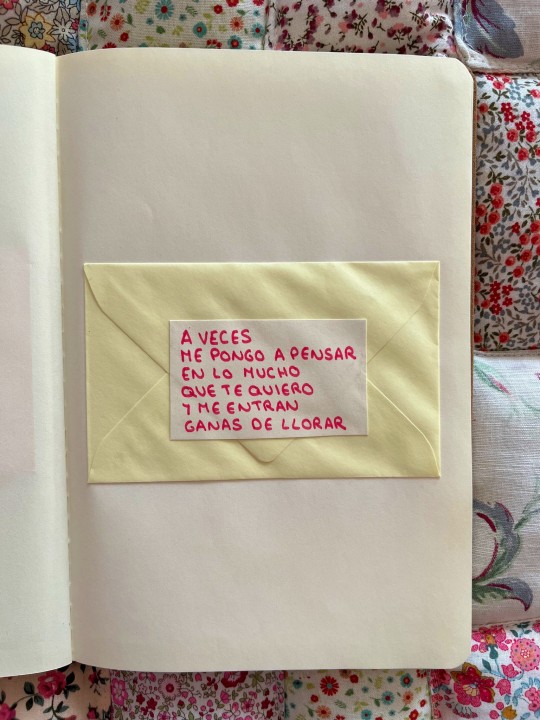 A VECES
ME PONGO A PENSAR
EN LO MUCHO
QUE TE QUIERO
Y ME ENTRAN
GANAS DE LLORAR